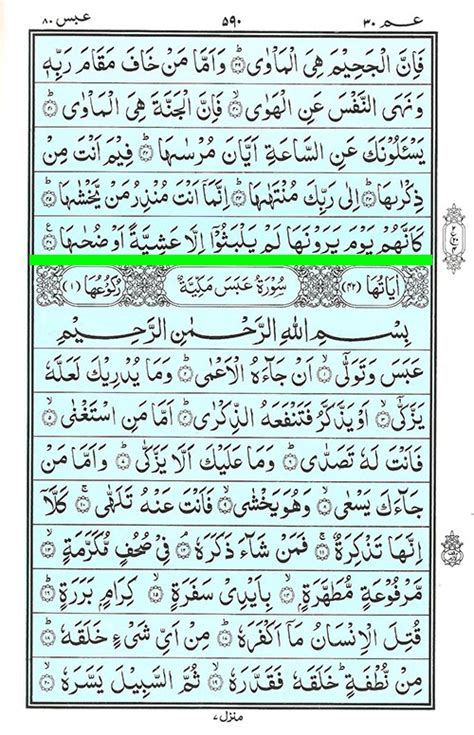 عـم ۳۰ ۵۹۰ عبس ۸۰
فَاِنَّ الْجَحِيْمَ هِيَ الْمَاْوٰى ﴿۳۹﴾ وَاَمَّا مَنْ خَافَ مَقَامَ رَبِّهٖ
وَنَهَى النَّفْسَ عَنِ الْهَوٰى ﴿۴۰﴾ فَاِنَّ الْجَنَّةَ هِيَ الْمَاْوٰى ﴿۴۱﴾
يَسْـَٔلُوْنَكَ عَنِ السَّاعَةِ اَيَّانَ مُرْسٰىهَا ﴿۴۲﴾ فِيْمَ اَنْتَ مِنْ
ذِكْرٰىهَا ﴿۴۳﴾ اِلٰى رَبِّكَ مُنْتَهٰىهَا ﴿۴۴﴾ اِنَّمَاۤ اَنْتَ مُنْذِرُ مَنْ يَّخْشٰىهَا ﴿۴۵﴾
كَاَنَّهُمْ يَوْمَ يَرَوْنَهَا لَمْ يَلْبَثُوْۤا اِلَّا عَشِيَّةً اَوْ ضُحٰىهَا ﴿۴۶﴾
اٰيَاتُهَا (۴۲) سُوْرَةُ عَبَسَ مَكِّيَّةٌ رُكُوْعُهَا (۱)
بِسْمِ اللّٰهِ الرَّحْمٰنِ الرَّحِيْمِ
عَبَسَ وَتَوَلّٰۤى ﴿۱﴾ اَنْ جَآءَهُ الْاَعْمٰى ﴿۲﴾ وَمَا يُدْرِيْكَ لَعَلَّهٗ
يَزَّكّٰۤى ﴿۳﴾ اَوْ يَذَّكَّرُ فَتَنْفَعَهُ الذِّكْرٰى ﴿۴﴾ اَمَّا مَنِ اسْتَغْنٰى ﴿۵﴾
فَاَنْتَ لَهٗ تَصَدّٰى ﴿۶﴾ وَمَا عَلَيْكَ اَلَّا يَزَّكّٰى ﴿۷﴾ وَاَمَّا مَنْ
جَآءَكَ يَسْعٰى ﴿۸﴾ وَهُوَ يَخْشٰى ﴿۹﴾ فَاَنْتَ عَنْهُ تَلَهّٰى ﴿۱۰﴾ كَلَّاۤ
اِنَّهَا تَذْكِرَةٌ ﴿۱۱﴾ فَمَنْ شَآءَ ذَكَرَهٗ ﴿۱۲﴾ فِيْ صُحُفٍ مُّكَرَّمَةٍ ﴿۱۳﴾
مَّرْفُوْعَةٍ مُّطَهَّرَةٍ ﴿۱۴﴾ بِاَيْدِيْ سَفَرَةٍ ﴿۱۵﴾ كِرَامٍ بَرَرَةٍ ﴿۱۶﴾
قُتِلَ الْاِنْسَانُ مَاۤ اَكْفَرَهٗ ﴿۱۷﴾ مِنْ اَيِّ شَيْءٍ خَلَقَهٗ ﴿۱۸﴾
مِنْ نُّطْفَةٍ خَلَقَهٗ فَقَدَّرَهٗ ﴿۱۹﴾ ثُمَّ السَّبِيْلَ يَسَّرَهٗ ﴿۲۰﴾
منزل ۷